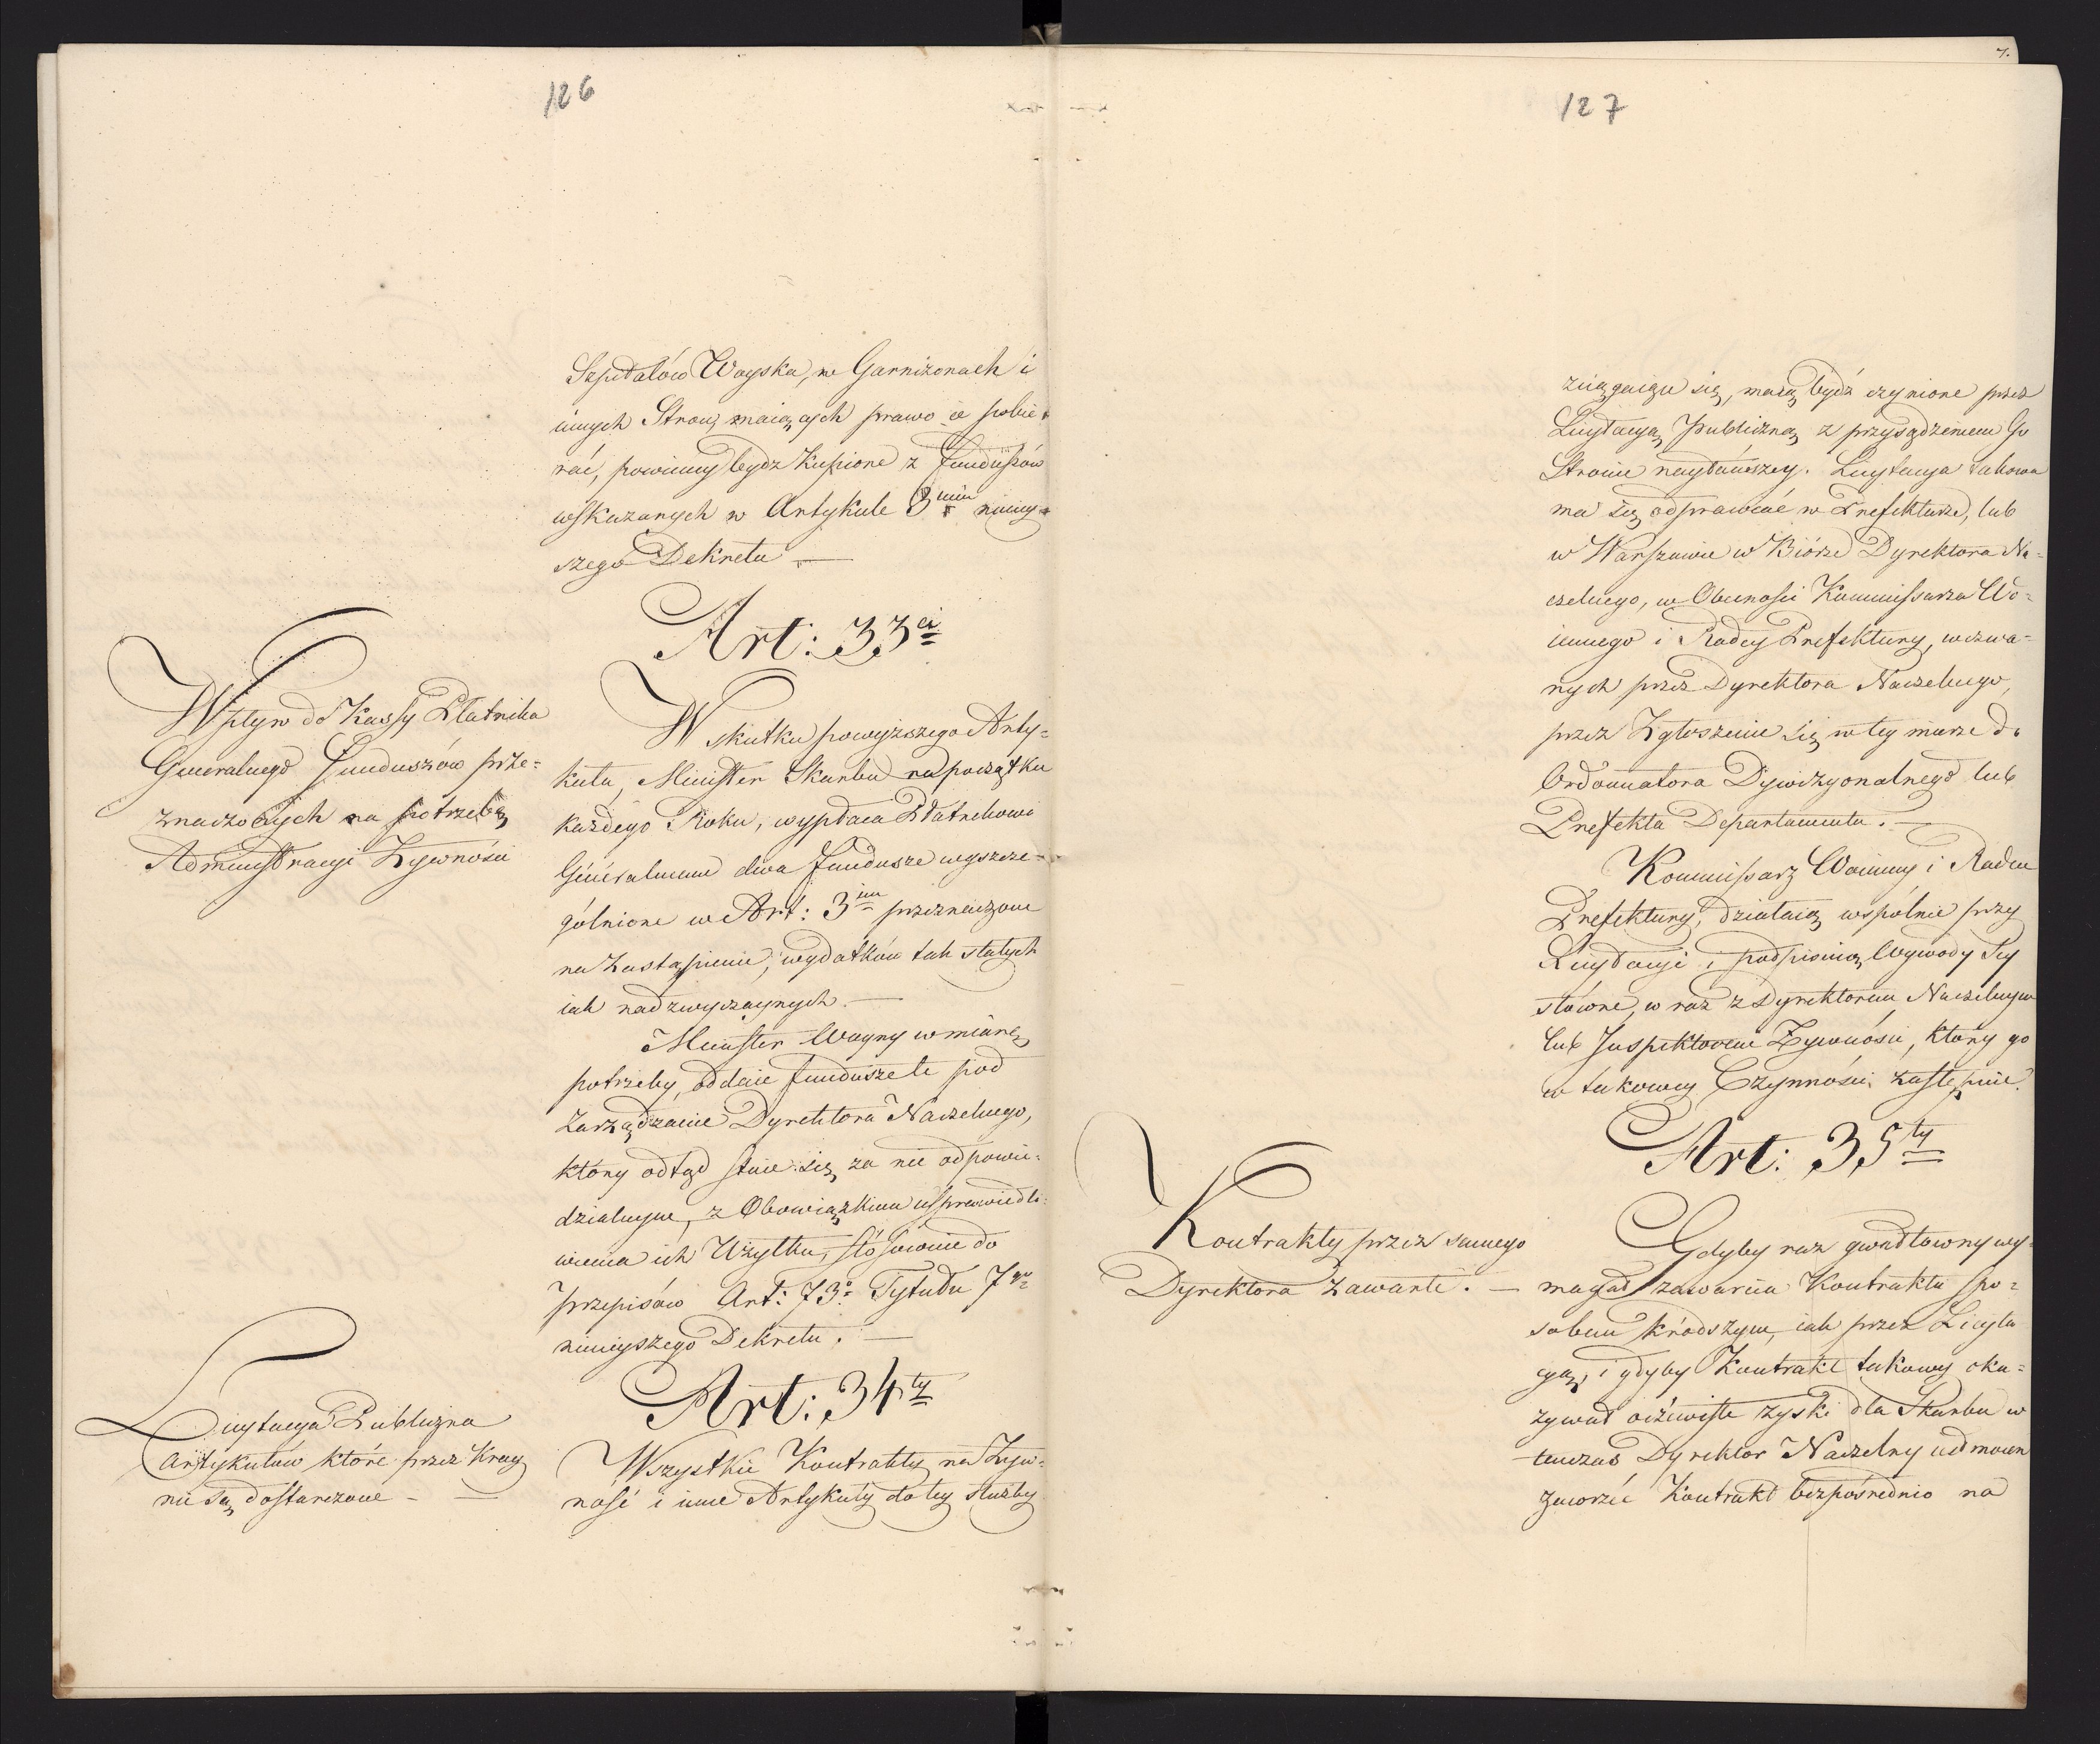 126
Szpitalów Woyska, w Garnizonach i
innych Stron, maiących prawo ie pobie-
rać, powinny bydz Kupione z funduszów
wskazanych w Artykule 3<sup>nim</sup> niniey-
szego Dekretu —
Art: 33<sup>ci</sup>
Wpływ do Kassy Płatnika
Generalnego Funduszów prze=
znaczonych na potrzebę
Administracyi Żywności
W skutku powyższego Arty=
kułu, Minister Skarbu na początku
każdego Roku, wypłaca Płatnikowi
Generalnemu dwa fundusze wyszcze-
gólnione w Art: 3<sup>im</sup> przeznaczone
na zastąpienie, wydatków tak stałych
iak nadzwyczaynych. —
Minister Woyny w miarę
potrzeby, oddaie fundusze te pod
Zarządzanie Dyrektora Naczelnego,
który odtąd staie się za nie odpowie-
dzialnym, z Obowiązkiem usprawiedli-
wienia ich Użytku, stósownie do
przepisów Art: 73<sup>o</sup> Tytułu 7<sup>go</sup>
ninieyszego Dekretu. —
Art: 34<sup>ty</sup>
Licytacya Publiczna
Artykułów które przez Kray
nie są dostarczone — —
Wszystkie Kontrakty na Żyw=
ność i inne Artykuły do tey służby
7.
127
ściągaiące się, maią bydź czynione przez
Licytacyą Publiczną z przysądzeniem Go
Stronie naytańszey. Licytacya takowa
ma się odprawiać w Prefekturze, lub
w Warszawie w Biórze Dyrektora Na=
czelnego, w Obecności Kommissarza Wo=
iennego i Radcy Prefektury, wezwa=
nych przez Dyrektora Naczelnego,
przez Zgłoszenie się w tey mierze do
Ordonnatora Dywizyonalnego lub
Prefekta Departamentu. —
Kommissarz Woienny i Radca
Prefektury, działaią wspólnie przy
Licytacyi i podpisuią Wywody Sły
słowne, w raz z Dyrektorem Naczelnym
lub Inspektorem Żywności, który go
w takowey Czynności zastępuie.
Art: 35<sup>ty</sup>
Kontrakty przez samego
Dyrektora zawarte. —
Gdyby raz gwałtowny wy-
magał zawarcia Kontraktu spo=
sobem krodszym, iak przez Licyta
cyą, i gdyby Kontrakt takowy oka=
zywał oczywiste zyski dla Skarbu w
tenczas Dyrektor Naczelny ud mocen
zawrzeć Kontrakt bezpośrednio na